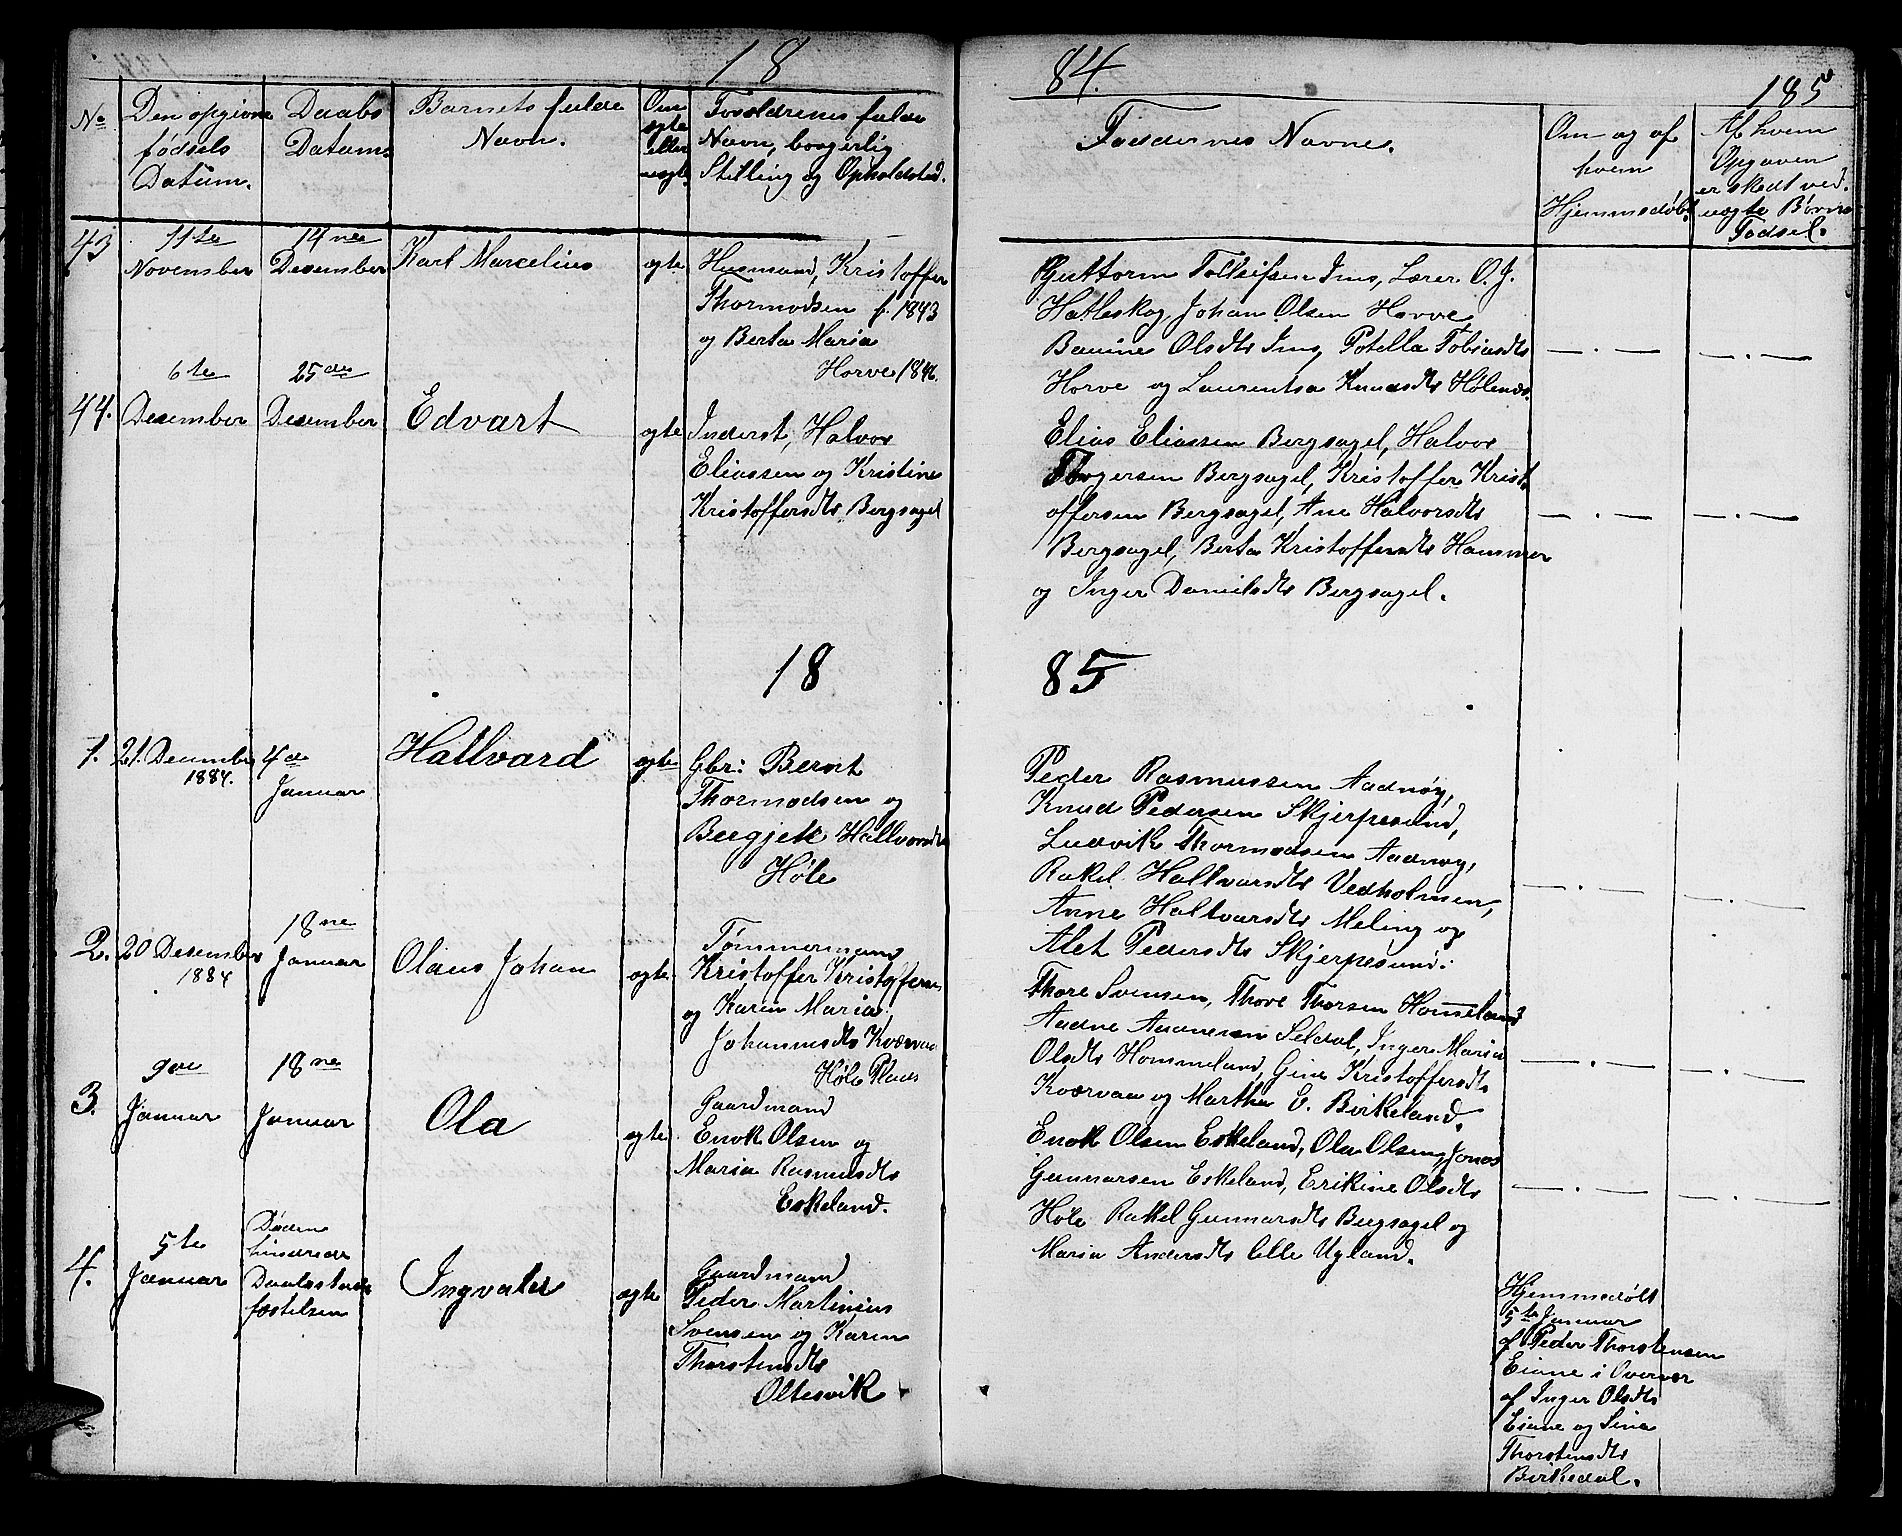 18
84.
185
No
Den opgivne
fødsels
Datum.
Daabs
Datum.
Barnets fulde
Navn.
Om
egte
eller
uegte.
Forældrenes fulde
Navn, borgerlig
Stilling og Opholdsted.
Faddernes Navne.
Om og af
hvem
Hjemmedøbt.
Af hvem
Opgaven
er skedt ved
uægte Børns
Fødsel.
43
11te
November
14ne
Desember
Karl Marcelius
egte
Husmand, Kristoffer
Thormodsen f. 1843
og Berta Maria
Horve 1846.
Guttorm Tolleifsen Ims, Lærer O. J.
Hatleskog, Johan Olsen Horve
Olsdtr Ims, Tobiasdtr
Horve og Laurentsa Knudsdtr Hølenæs.
44.
6te
Desember
25de
Desember
Edvart
egte
Inderst, Halvor
Eliassen og Kristine
Kristoffersdtr Bergsagel
Elias Eliassen Bergsagel, Halvor
Torgersen Bergsagel, Kristoffer Krist
offersen Bergsagel, Ane Halvorsdtr
Bergsagel, Berta Kristoffersdtr Hammer
og Inger Danielsdtr Bergsagel.
18
85
1.
21. Desember
1884.
4de
Januar
Hallvard
egte
Gbr: Bernt
Thormodsen og
Bergjete Hallvardsdtr
Høle
Peder Rasmussen Aadnøy,
Knud Pedersen Skjerpesund,
Ludvik Thormodsen Aadnøy,
Rakel Hallvarsdtr Vedholmen,
Anne Hallvarsdtr Meling og
Alet Pedersdtr Skjerpesund.
2.
20 Desember
1884
18ne
Januar
Olaus Johan
egte
Tømmermand
Kristoffer Kristoffersen
og Karen Maria
Johannesdtr Kværvaa
Høle Plads
Thore Svensen, Thore Thorsen Hommeland
Aadne Aadnesen Seldal, Inger Maria
Olsdtr Hommeland, Gine Kristoffersdtr
Kværvaa og Martha E. Birkeland.
3.
9de
Januar
18ne
Januar
Ola
egte
Gaardmand
Enok Olsen og
Maria Rasmusdtr
Eskeland.
Enok Olsen Eskeland, Ola Olsen, Jonas
Gunnarsen Eskeland, Erikine Olsdtr
Høle Rakel Gunnarsdtr Bergsagel og
Maria Andersdtr Lelle Ugland.
4.
5te
Januar
Døden
hindrede
Daabsstad
fæstelsen
Ingvald
egte
Gaardmand
Peder Martinius
Svensen og Karen
Thorstensdtr
Oltesvik
Hjemmedøbt
5te Januar
af Peder Thorstensen
Eiane i Overvær
af Inger Olsdtr
Eiane og Sina
Thorstensdtr
Birkedal.